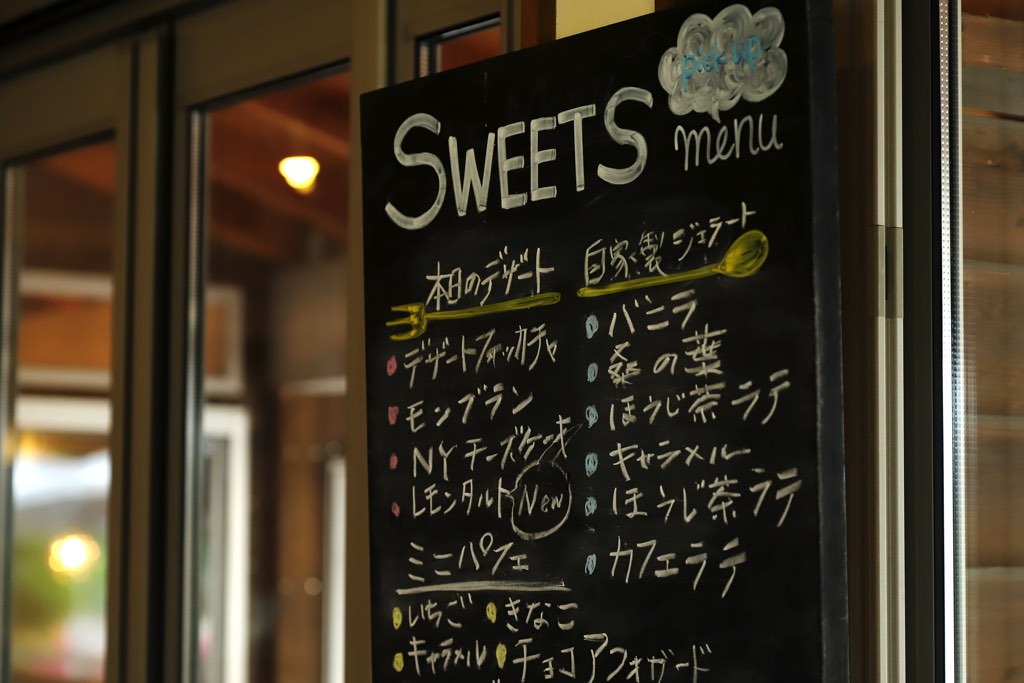 pick up
SWEETS
menu
本日のデザート
デザートフォッカチャ
モンブラン
NY チーズケーキ
レモンタルト New
ミニパフェ
いちご きなこ
キャラメル チョコアフォガード
自家製ジェラート
バニラ
桑の葉
ほうじ茶ラテ
キャラメル
ほうじ茶ラテ
カフェラテ